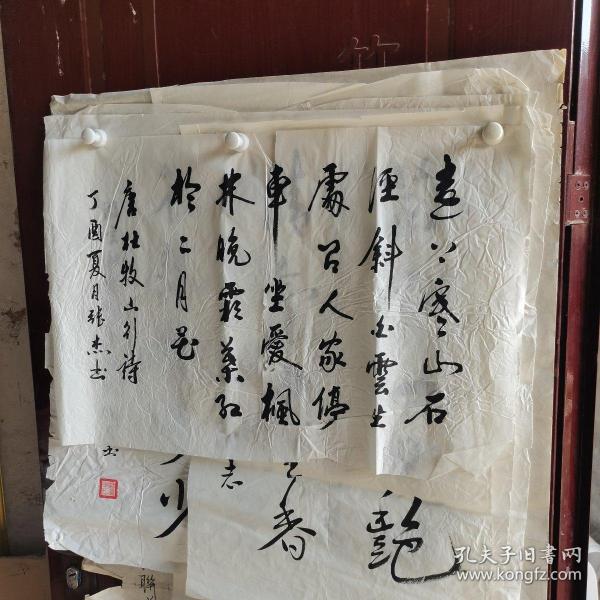 遠上寒山石
徑斜白雲生
處有人家停
車坐愛楓
林晚霜葉紅
於二月花
唐杜牧山行詩
丁酉夏月張杰书
艷
香
志
少
聯
孔夫子旧书网
www.kongfz.com